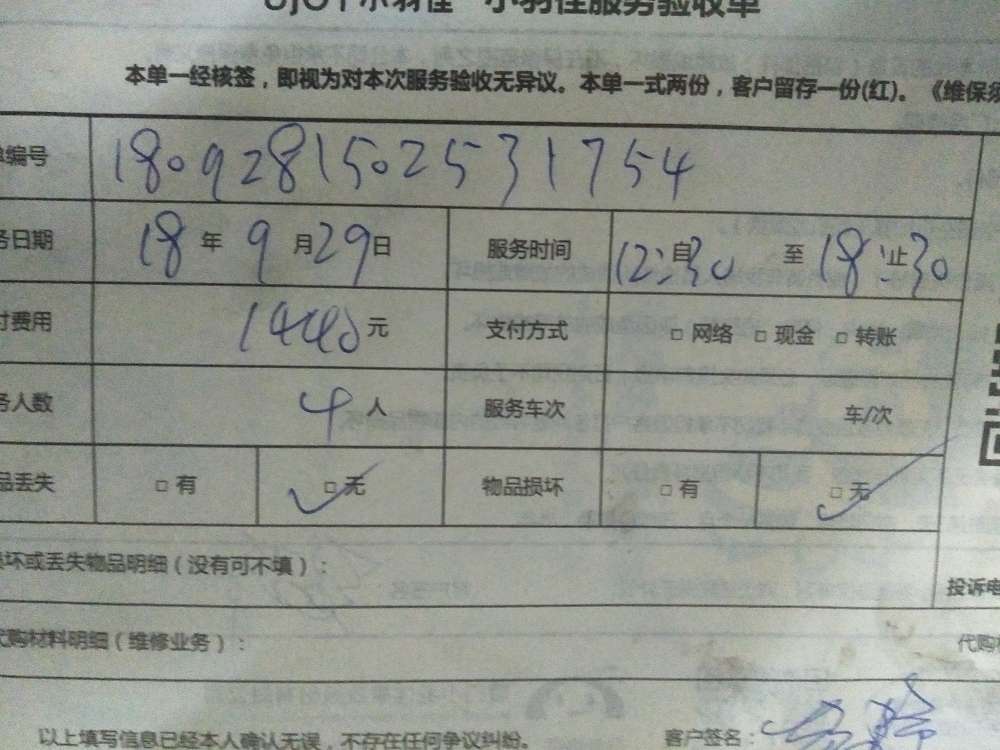 小羽佳服务验收单
本单一经核签，即视为对本次服务验收无异议。本单一式两份，客户留存一份(红)。《维保须
编号 1809281502531754
务日期 18年9月29日 服务时间 自12:30至18:30止
付费用 1440元 支付方式 □ 网络 □ 现金 □ 转账
务人数 4人 服务车次 车/次
品丢失 □ 有 □ 无 物品损坏 □ 有 □ 无
损坏或丢失物品明细（没有可不填）：
投诉电
代购材料明细（维修业务）： 代购
以上填写信息已经本人确认无误，不存在任何争议纠纷。 客户签名：